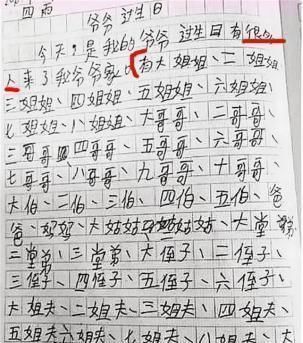 四雨
爷爷过生日
今天，是我的爷爷过生日有很多
人来了我爷爷家，有大姐姐、二姐姐、
三姐姐、四姐姐、五姐姐、六姐姐、
七姐姐、八姐姐、大哥哥、二哥哥、
三哥哥、四哥哥、五哥哥、六哥哥、
七哥哥、八哥哥、九哥哥、十哥哥、
大伯、二伯、三伯、四伯、五伯、爸
爸、妈妈、大姑姑、姑姑、大堂弟、
二堂弟、三堂弟、大侄子、二侄子、
三侄子、四侄子、五侄子、六侄子、
大姐夫、二姐夫、三姐夫、四姐夫、
五姐夫、六姐夫、七姐夫、八姐夫、大